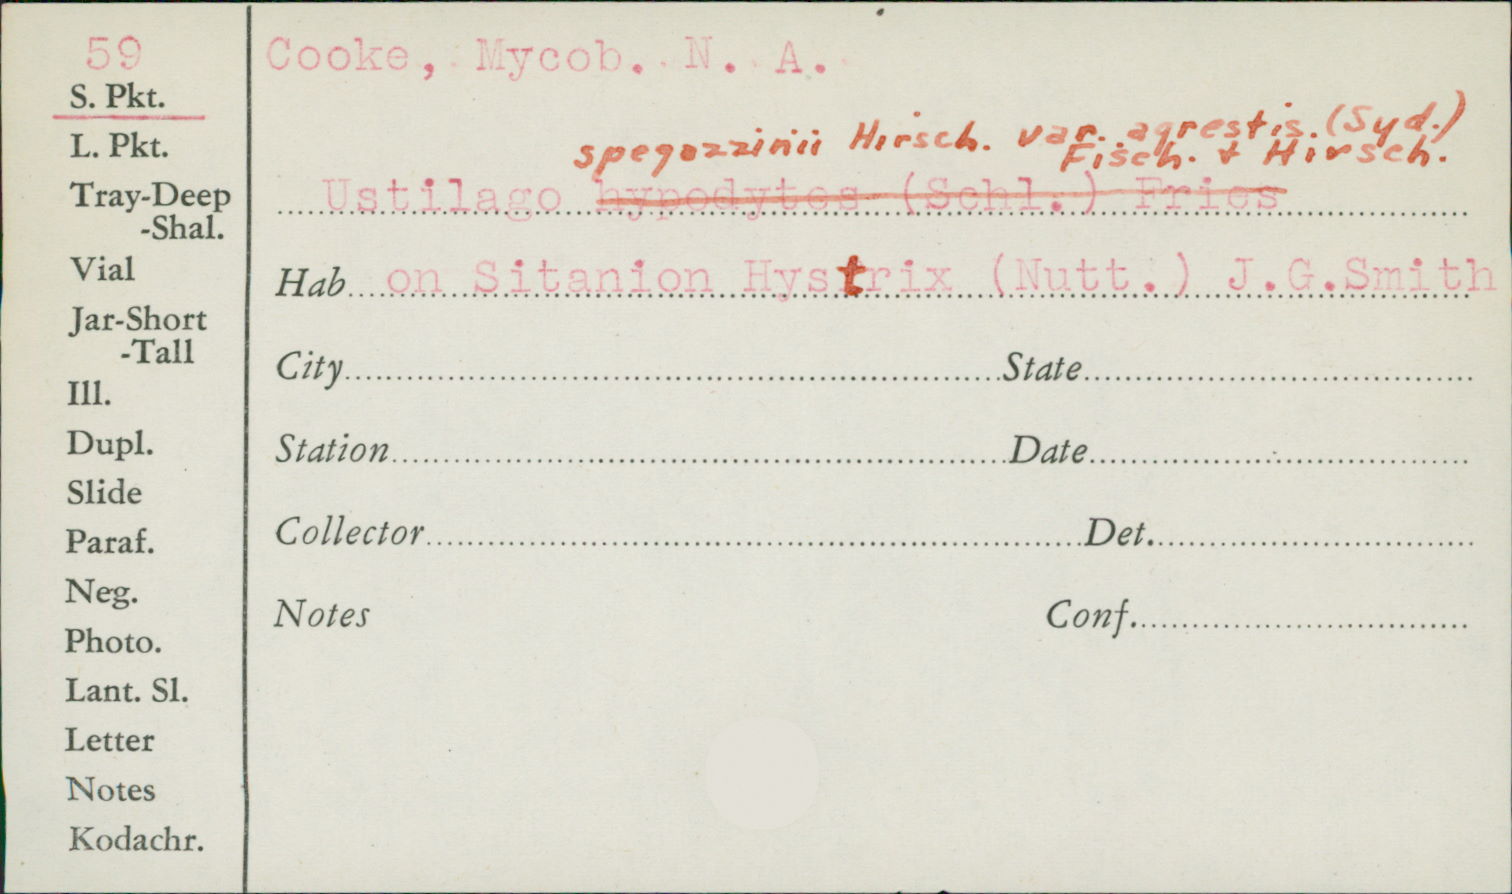 59
S. Pkt.
L. Pkt.
Tray-Deep
-Shal.
Vial
Jar-Short
-Tall
Ill.
Dupl.
Slide
Paraf.
Neg.
Photo.
Lant. Sl.
Letter
Notes
Kodachr.
Cooke, Mycob. N. A.
spegazzinii Hirsch. var. agrestis. (Syd.)
Fisch. + Hirsch.
Ustilago hypodytes (Schl.) Fries
Hab on Sitanion Hystrix (Nutt.) J.G.Smith
City State
Station Date
Collector Det.
Notes Conf.